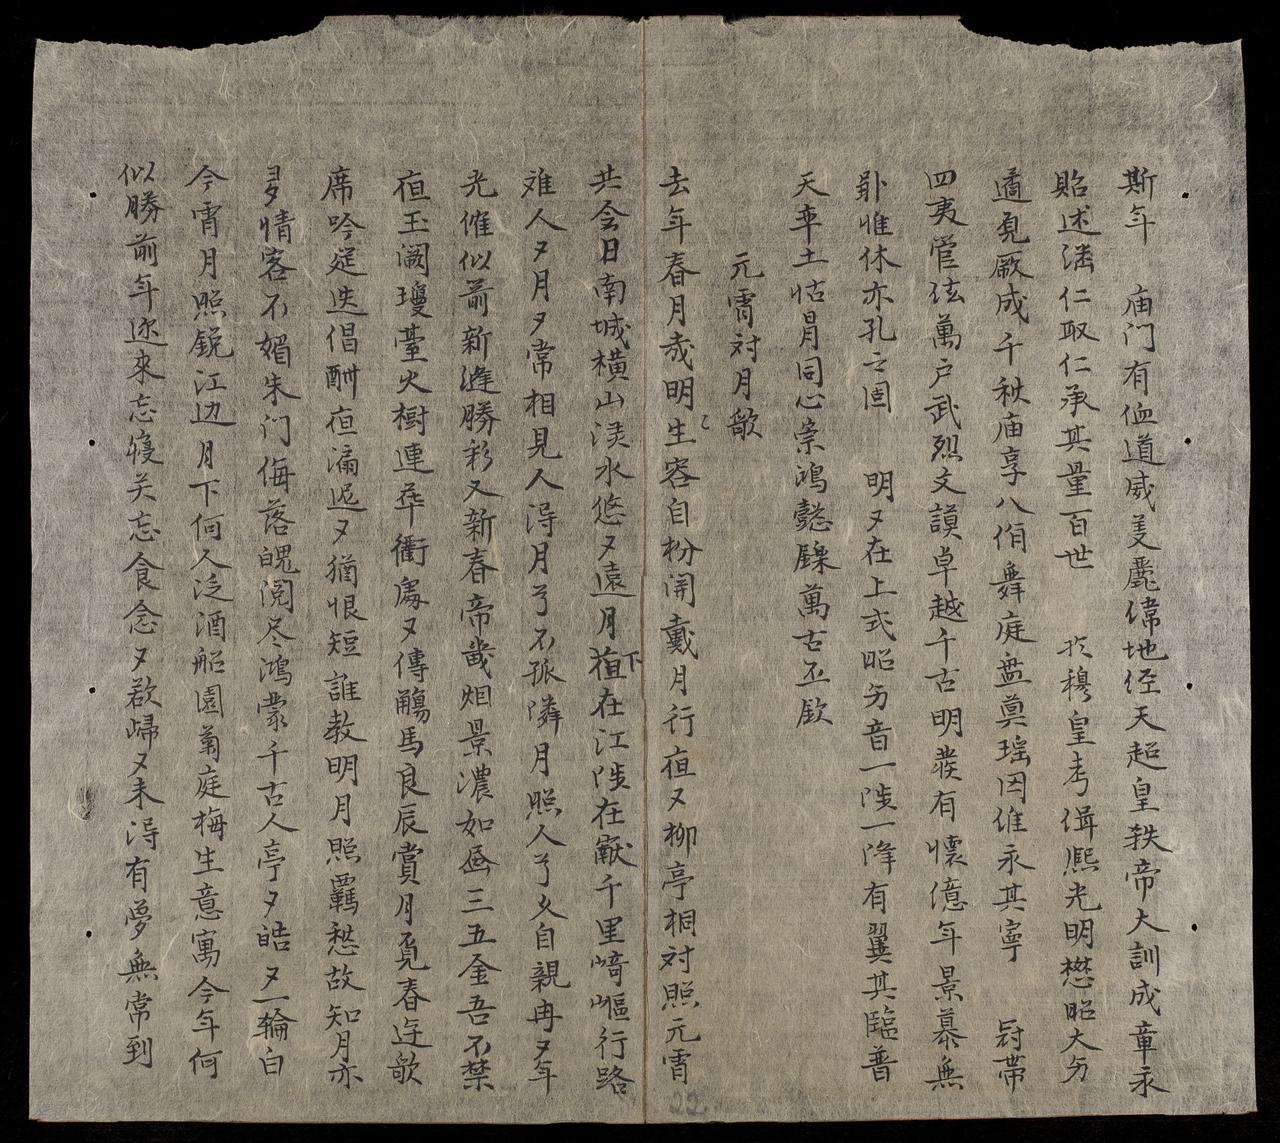 斯年 庙门有侐道威美麗偉地经天超皇軼帝大訓成章永
貽述潘仁取仁承其量百世 於穆皇考緝熙光明懋昭大𫝆
遹覓厥成千秋庙享八佾舞庭盎奠瑶因惟永其寧 冠帶
四夷管弦萬户武烈文謨卓越千古明發有懷億年景慕無
斁惟休亦孔之固 明〻在上式昭𫝆音一陟一降有翼其臨普
天率土怙冐同心崇鴻懿鑠萬古丕欽
元宵対月歌
去年春月哉明生容自粉開戴月行夜〻柳亭相対照元霄
共今日南城横山渌水悠〻遠月下植在江陟在巘千里﨑嶇行路
难人〻月〻常相見人得月兮不孤隣月照人兮久自親冉〻年
光催似前新縫勝彩又新春帝畿烟景濃如画三五金吾不禁
夜玉阙瓊䑓火樹連華衢處〻傳觴馬良辰賞月覓春逰歌
席吟筵迭倡酬夜漏遲〻猶恨短誰教明月照羈愁故知月亦
多情客不媚朱门侮落魄阅尽鴻濛千古人亭〻皓〻一輪白
今宵月照銳江边月下何人泛酒船園菊庭梅生意寓今年何
似勝前年迩來忘寝关忘食念〻欲歸〻未得有夢無常到
22